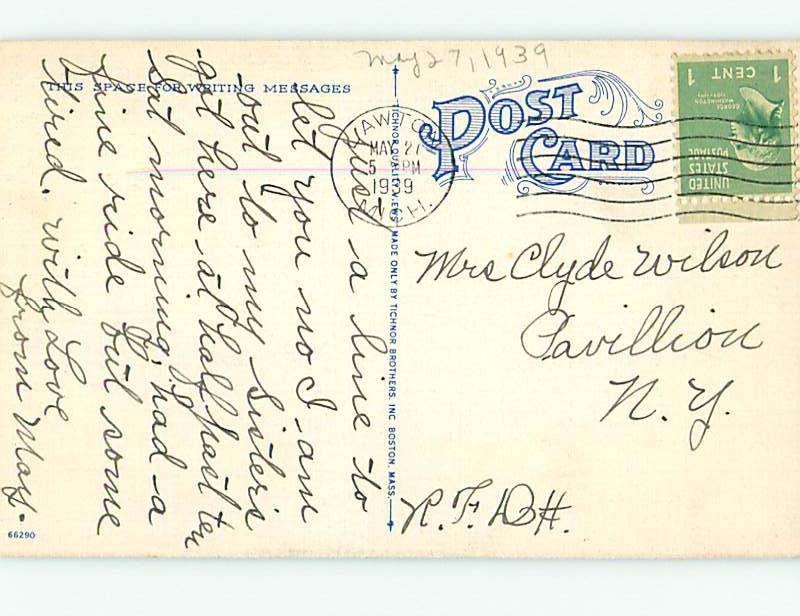 May 27, 1939
THIS SPACE FOR WRITING MESSAGES
POST CARD
MAY 27
5 PM
1939
MICH.
1 CENT 1
GEORGE WASHINGTON
UNITED STATES POSTAGE
Just a line to
let you no I am
out to my Sisters
got here at half past ten
Sat morning I had a
fine ride but some
tired. with Love
from May.
TICHNOR QUALITY VIEWS. MADE ONLY BY TICHNOR BROTHERS, INC. BOSTON, MASS.
Mrs Clyde Wilson
Pavillion
N. Y.
R. F. D #.
66290